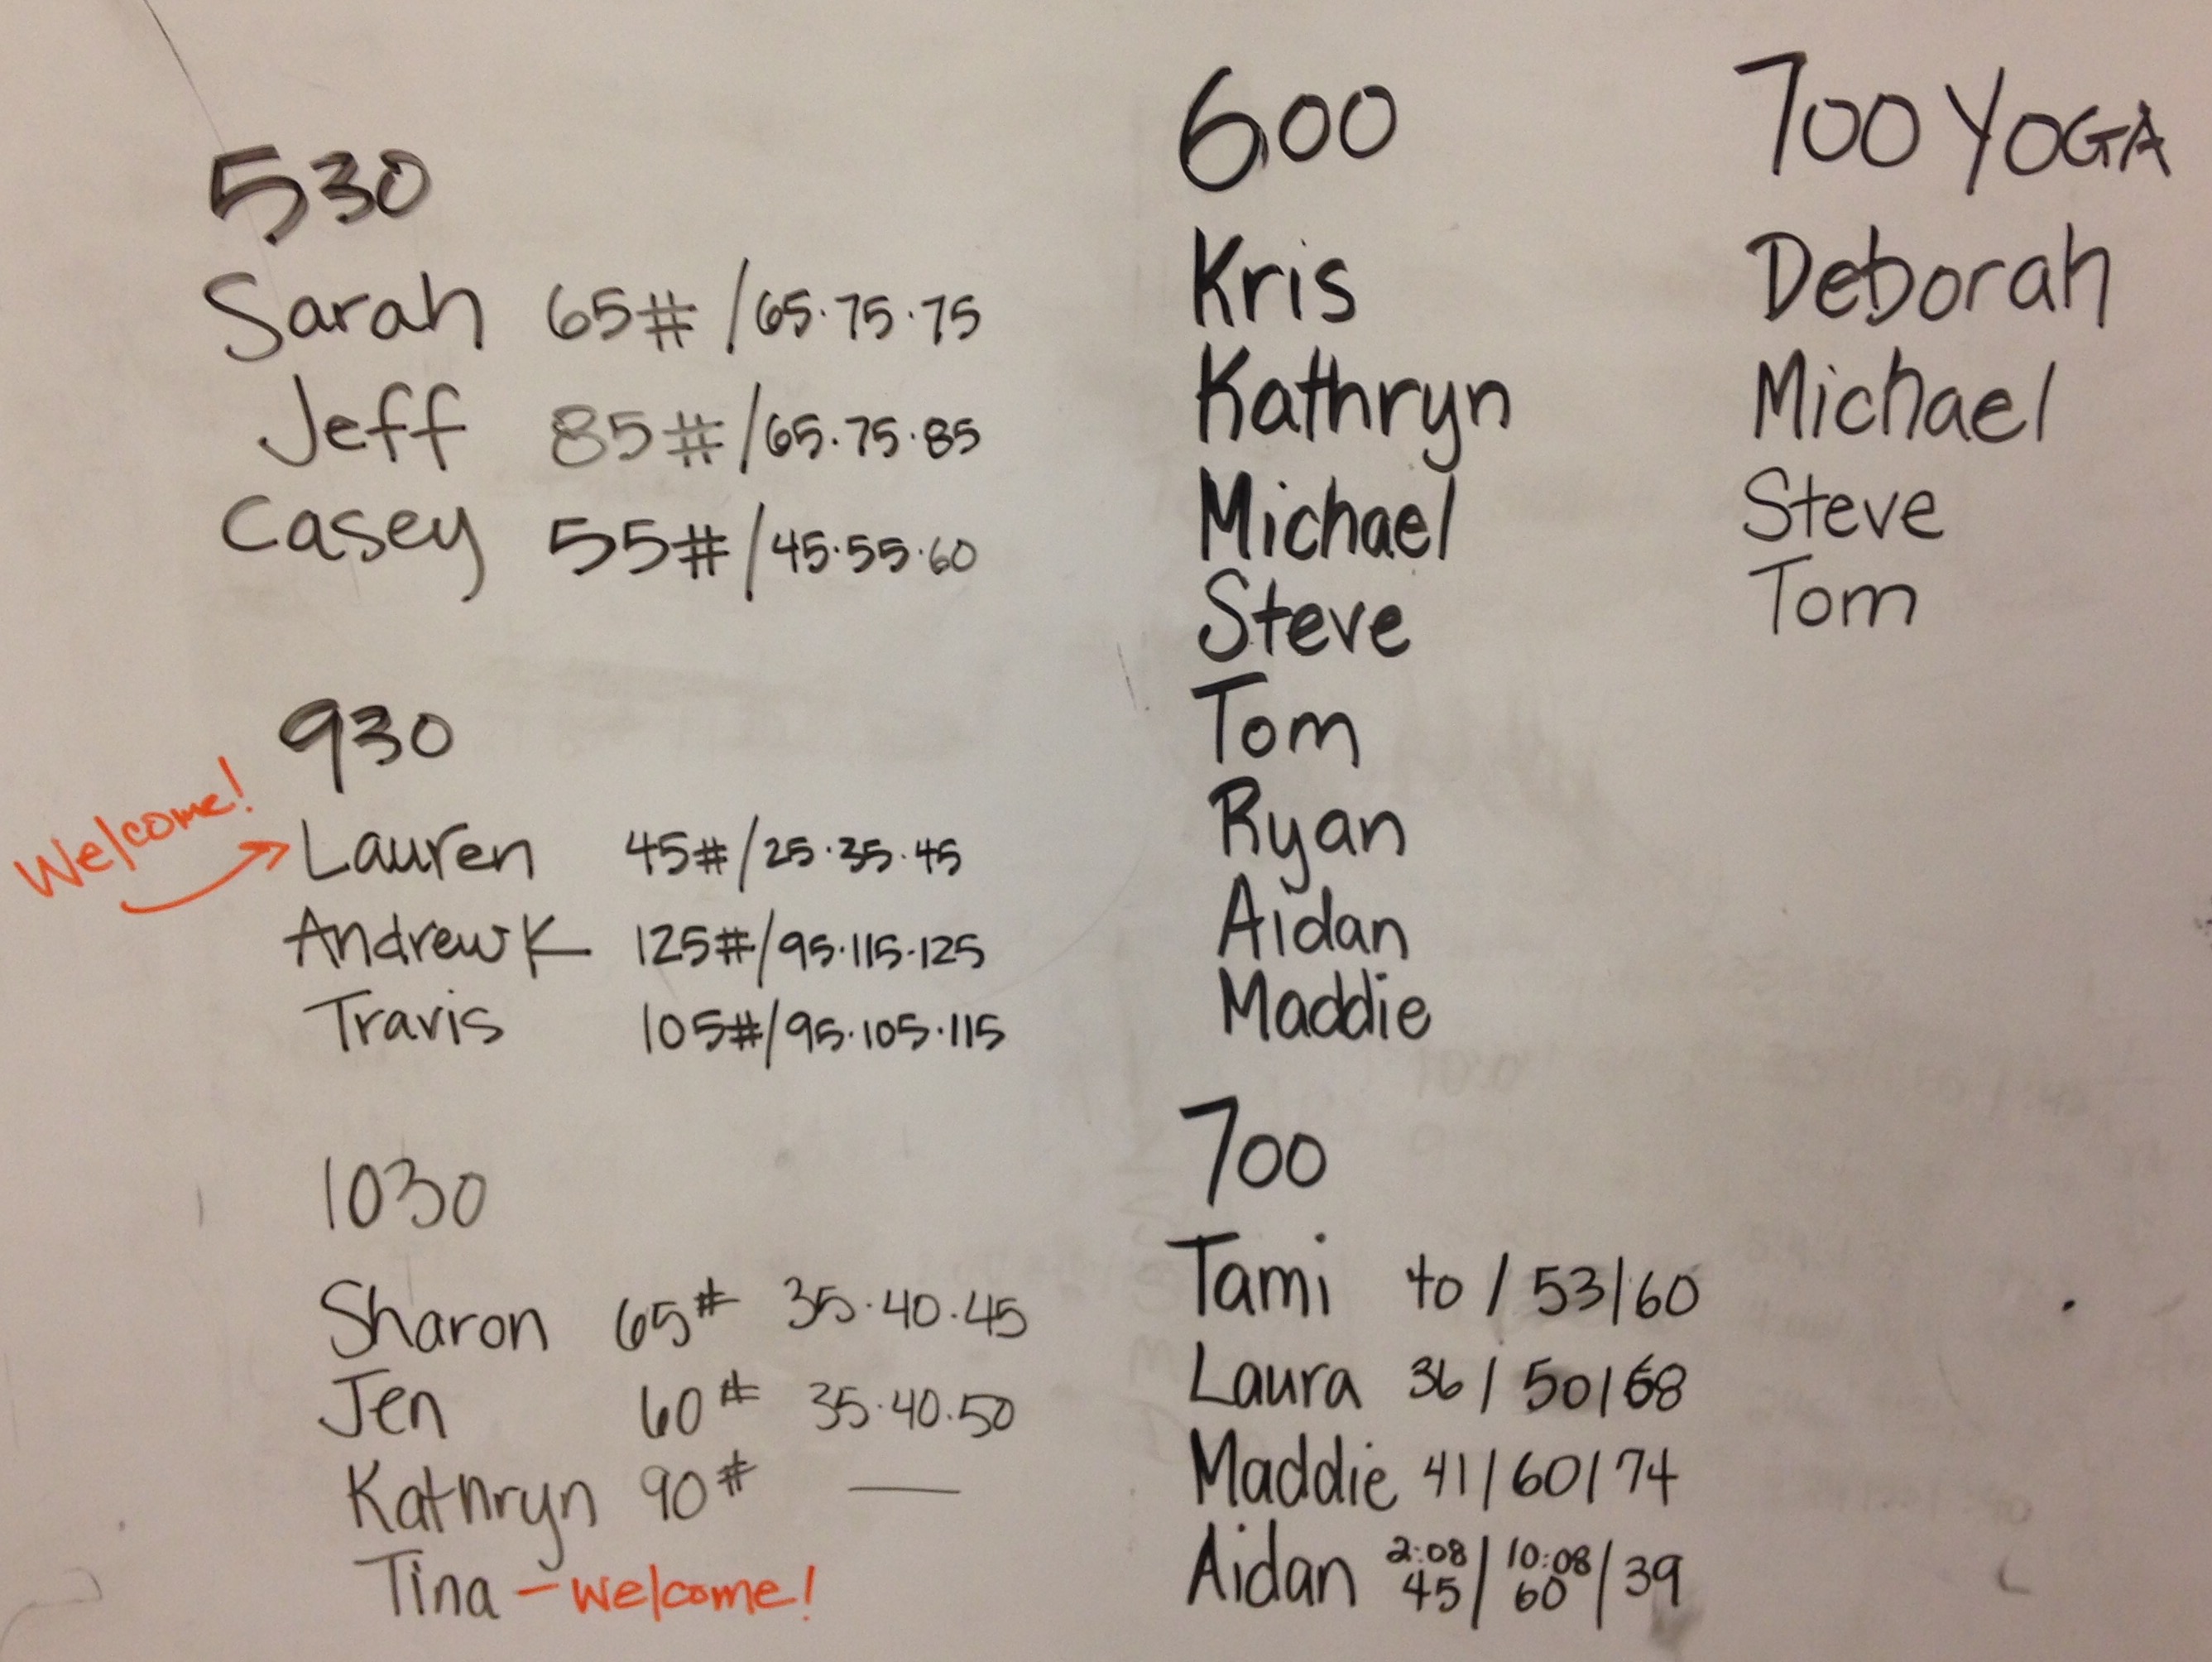 530
Sarah 65# / 65·75·75
Jeff 85# / 65·75·85
Casey 55# / 45·55·60
930
Welcome!
Lauren 45# / 25·35·45
Andrew K 125# / 95·115·125
Travis 105# / 95·105·115
1030
Sharon 65# 35·40·45
Jen 60# 35·40·50
Kathryn 90# —
Tina - welcome!
600
Kris
Kathryn
Michael
Steve
Tom
Ryan
Aidan
Maddie
700
Tami 40 / 53 / 60
Laura 36 / 50 / 68
Maddie 41 / 60 / 74
Aidan 2:08 / 10:08 / 39
45 60
700 YOGA
Deborah
Michael
Steve
Tom